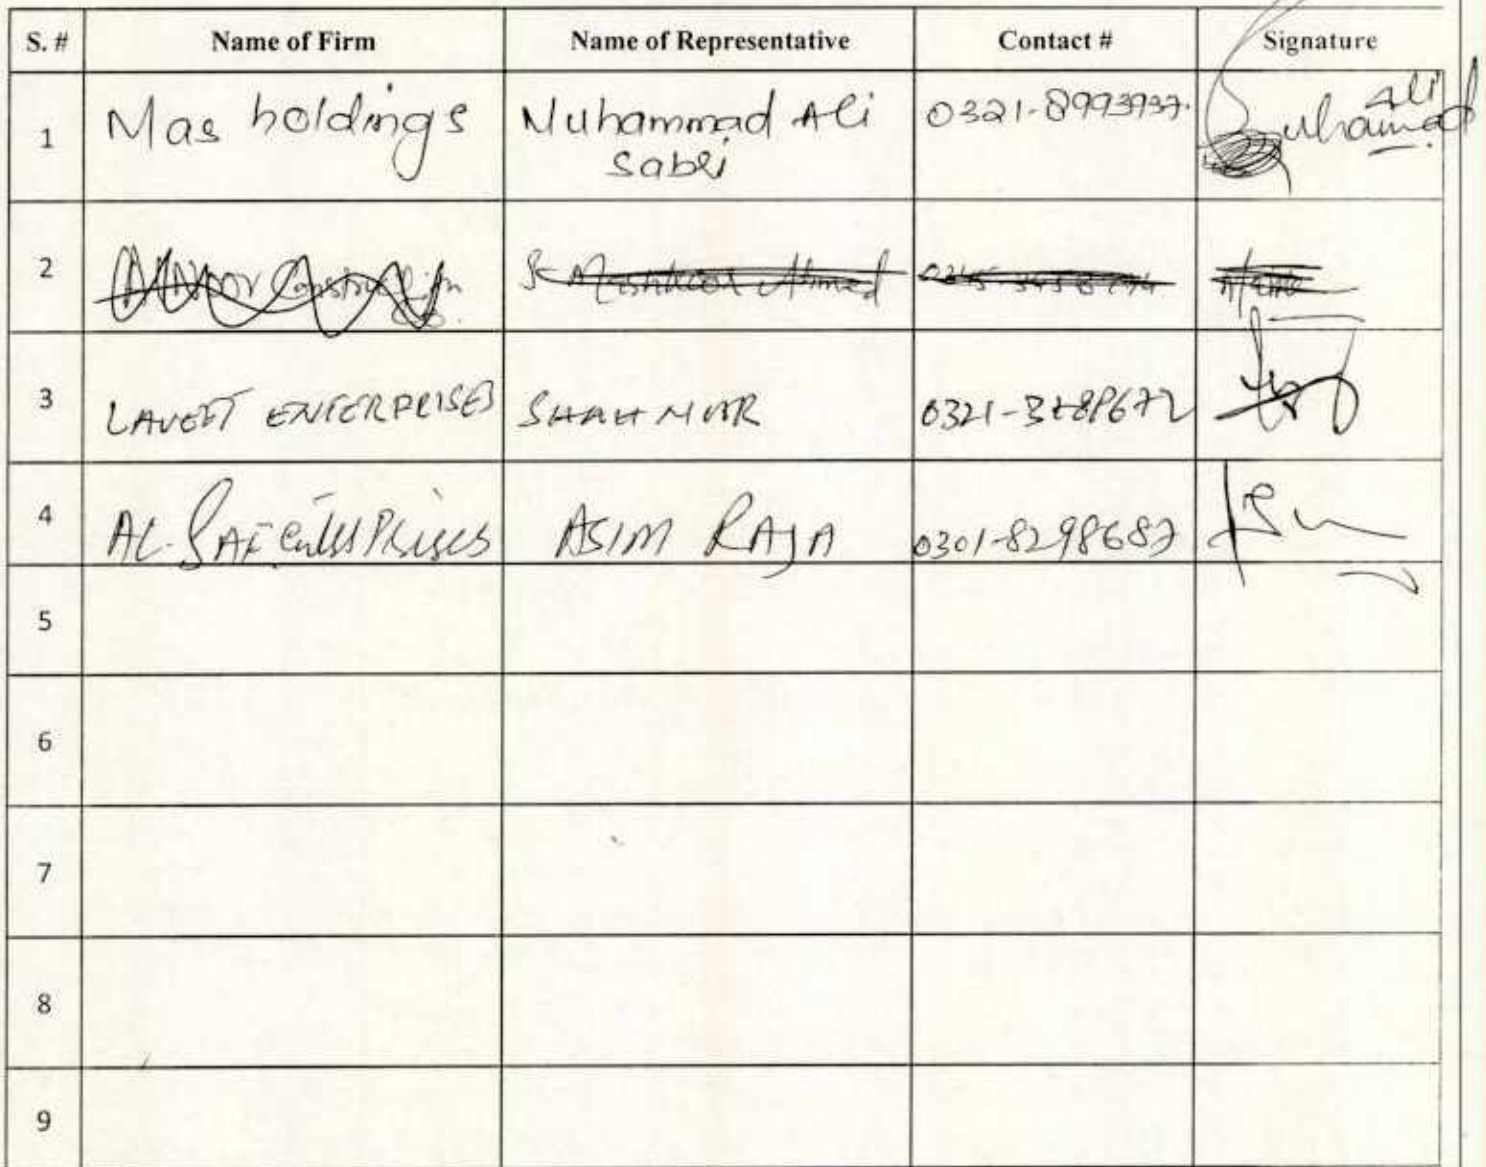 S. # Name of Firm Name of Representative Contact # Signature
1 Mas holdings Muhammad Ali 0321-8993937. Muhammad Ali
Sabri
2 Construction Ahmed
3 LAVEET ENTERPRISES SHAH MIR 0321-3788672
4 AL-SAF enterprises ASIM RAJA 0301-8298687
5
6
7
8
9